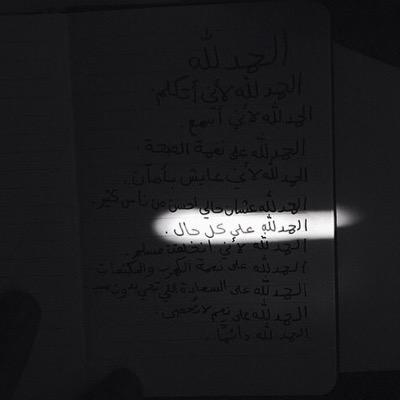 الحمد لله
الحمد لله لأني أتكلم.
الحمد لله لأني أسمع.
الحمد لله على نعمة الصحة.
الحمد لله لأني عايش بأمان.
الحمد لله عشان حالي أحسن من ناس كتير.
الحمد لله على كل حال.
الحمد لله لأني اتخلقت مسلم.
الحمد لله على نعمة الكهرب والمكتملات
الحمد لله على السعادة اللي تجي بدون سبب
الحمد لله على نعم لا تحصى.
الحمد لله دائمًا.